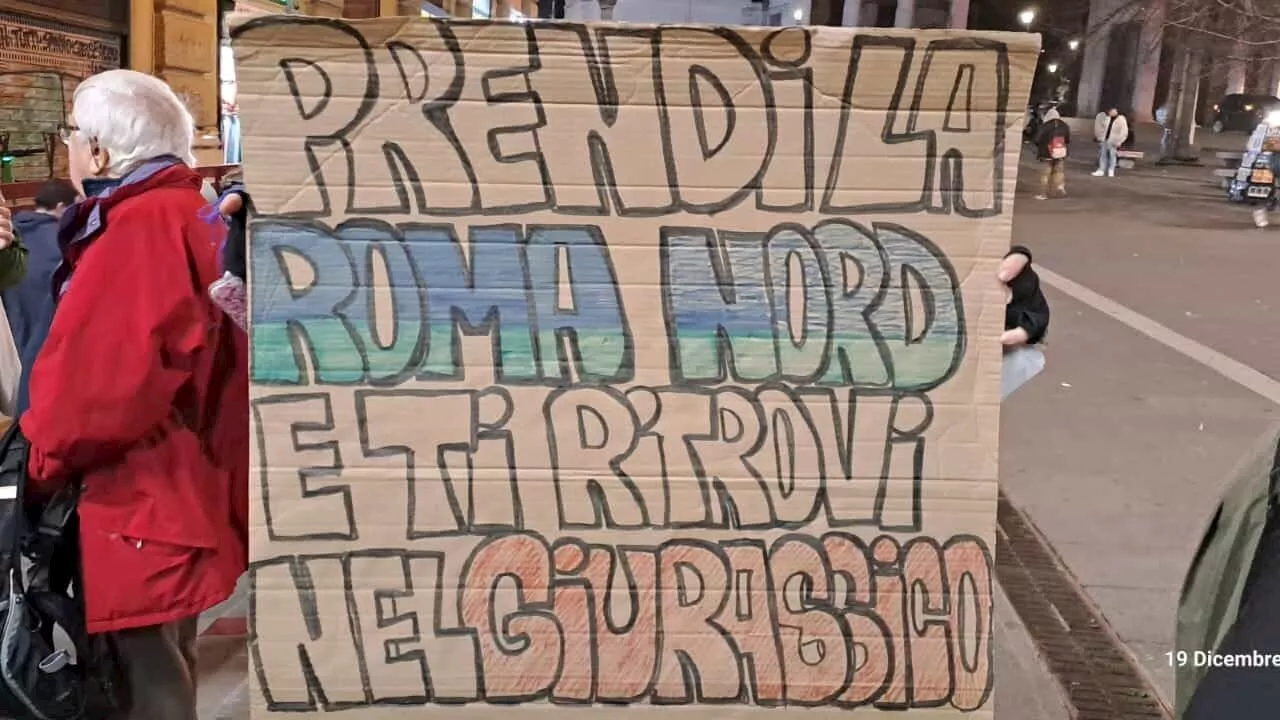 PRENDi LA
ROMA NORD
E Ti RiTROVi
NEL GiURASSiCO
19 Dicembre